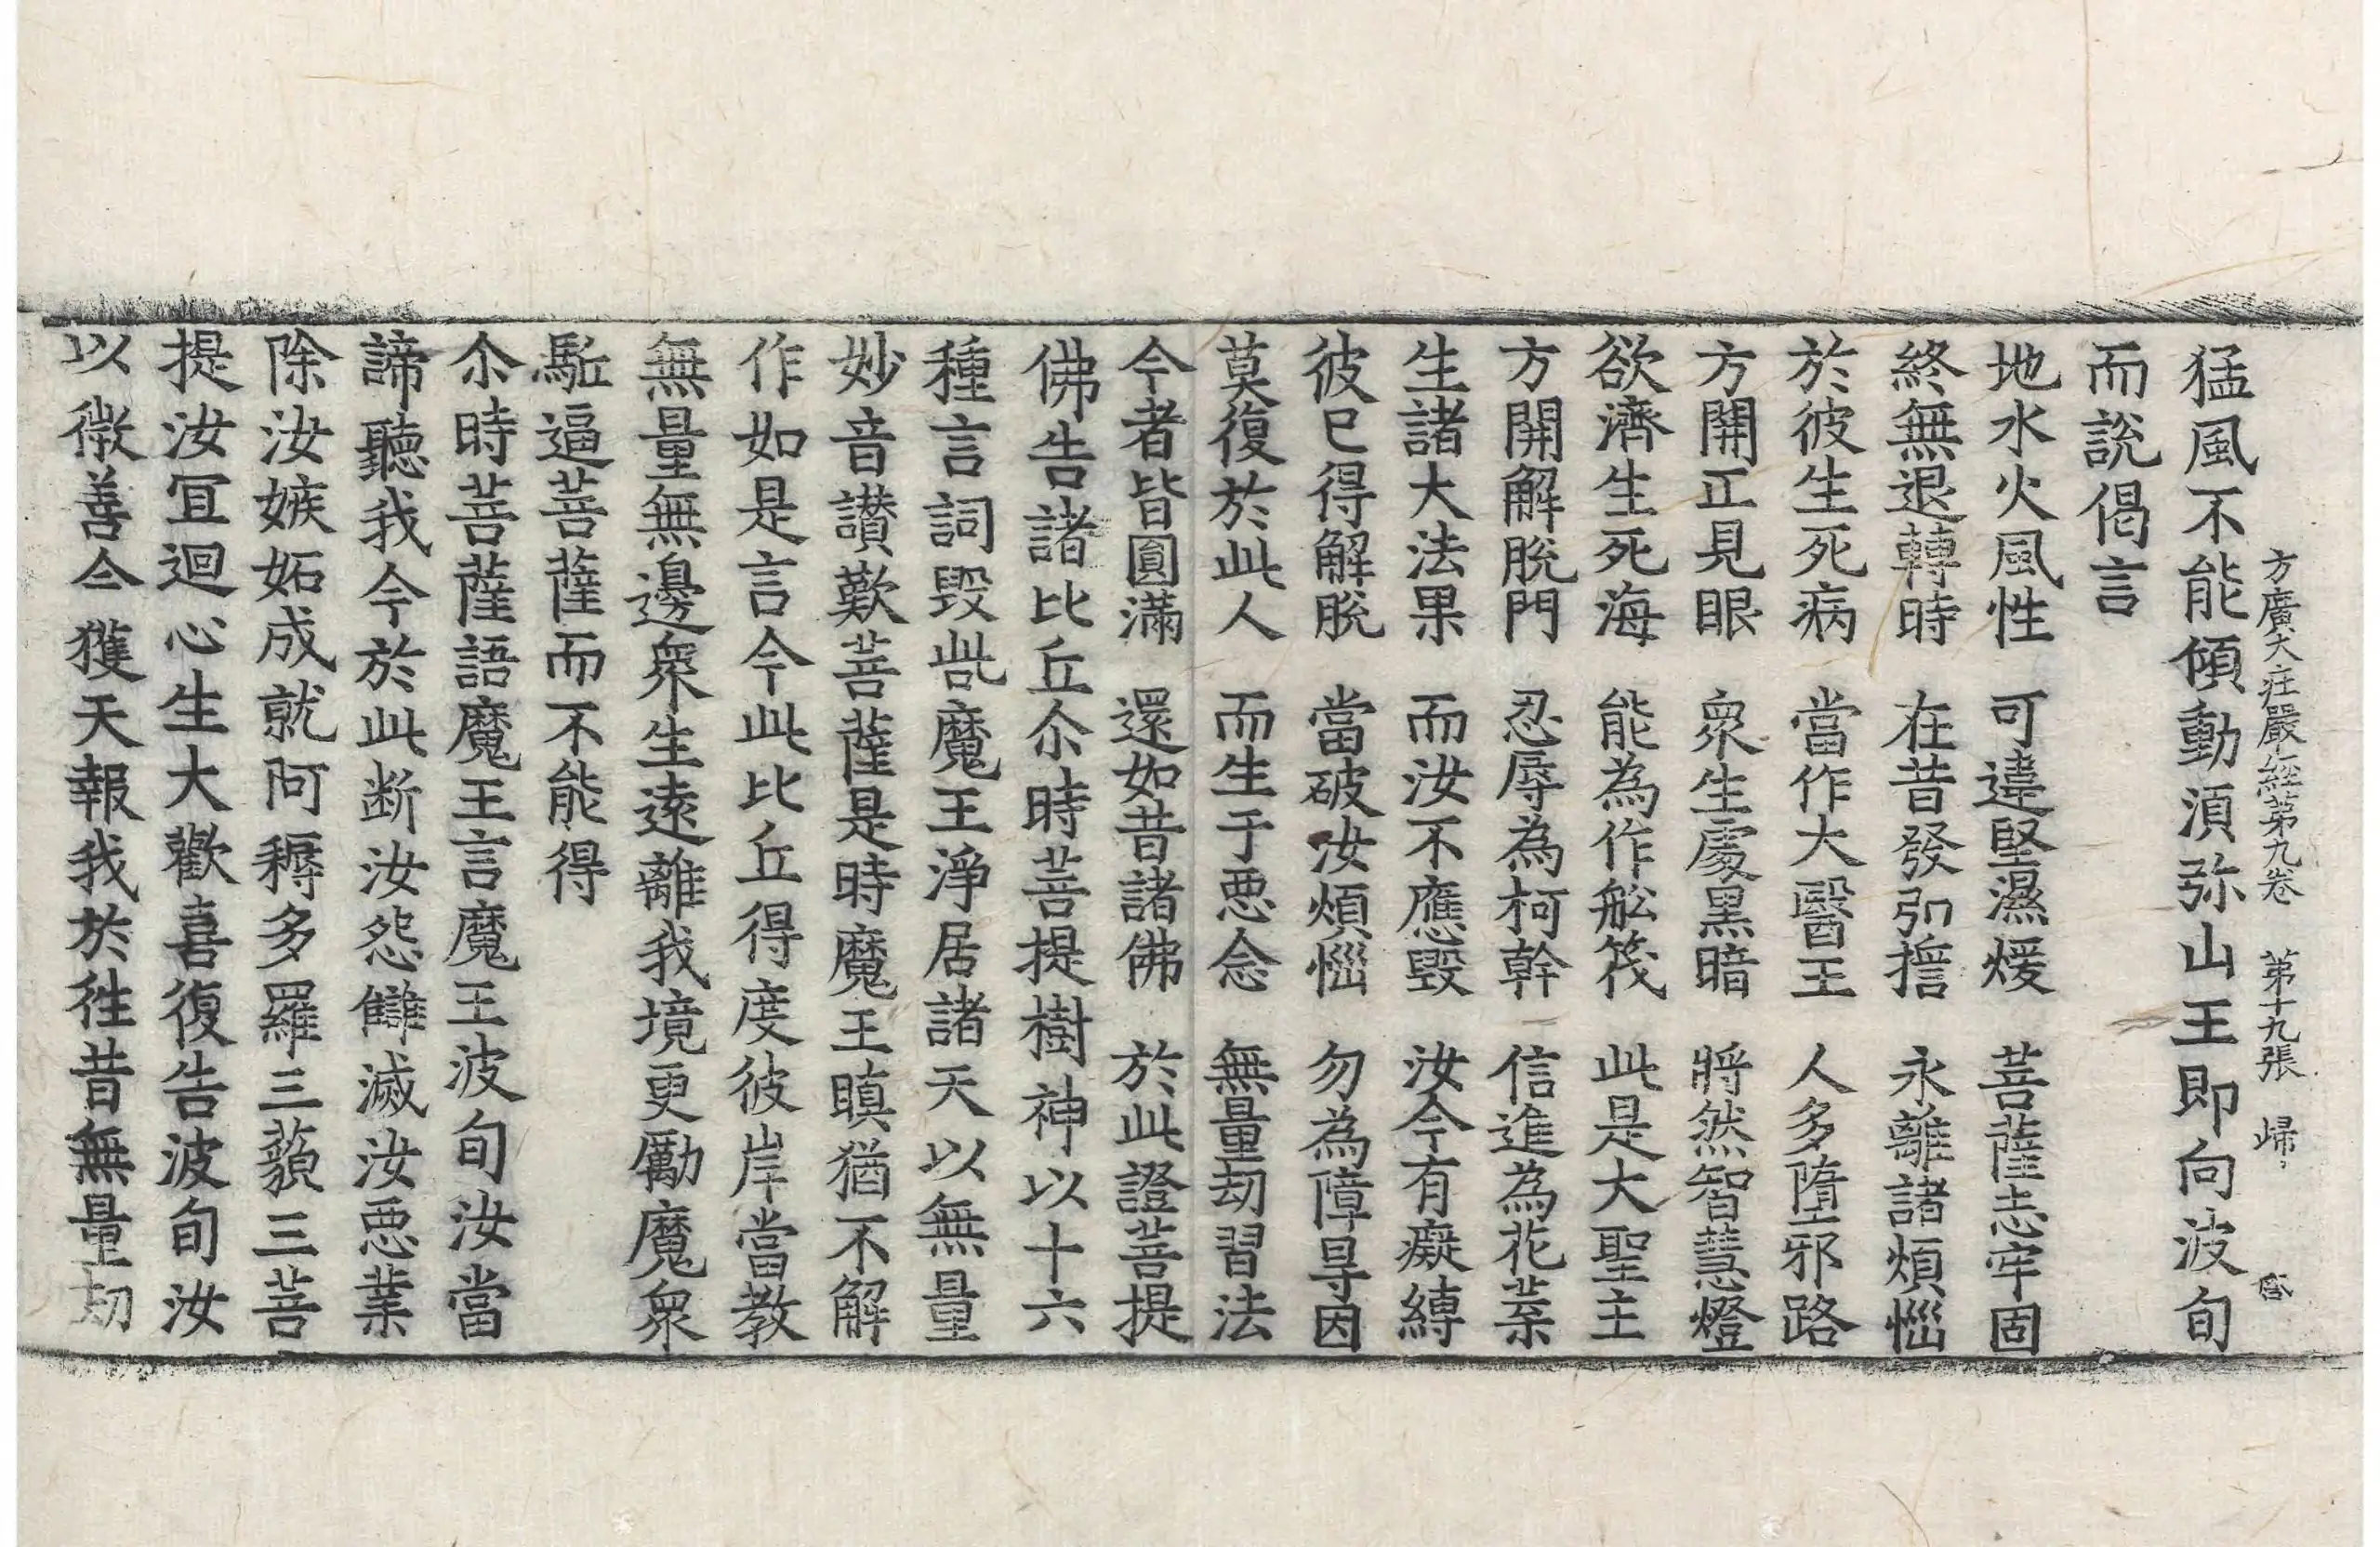 方廣大莊嚴經第九卷 第十九張 歸
猛風不能傾動須弥山王即向波旬
而說偈言
地水火風性 可違堅濕煖 菩薩志牢固
終無退轉時 在昔發弘擔 永離諸煩惱
於彼生死病 當作大醫王 人多墮邪路
方開正見眼 衆生處黑暗 將然智慧燈
欲濟生死海 能為作舩筏 此是大聖主
方開解脫門 忍辱為柯幹 信進為花葉
生諸大法果 而汝不應毀 汝今有癡縛
彼已得解脫 當破汝煩惱 勿為障㝵因
莫復於此人 而生于惡念 無量劫習法
今者皆圓滿 還如昔諸佛 於此證菩提
佛告諸比丘尒時菩提樹神以十六
種言詞毀呰魔王淨居諸天以無量
妙音讃歎菩薩是時魔王瞋猶不解
作如是言今此比丘得度彼岸當教
無量無邊衆生遠離我境更勵魔衆
駈逼菩薩而不能得
尒時菩薩語魔王言魔王波旬汝當
諦聽我今於此断汝怨讎滅汝惡業
除汝嫉妬成就阿耨多羅三藐三菩
提汝冝迴心生大歡喜復告波旬汝
以微善今獲天報我於徃昔無量劫